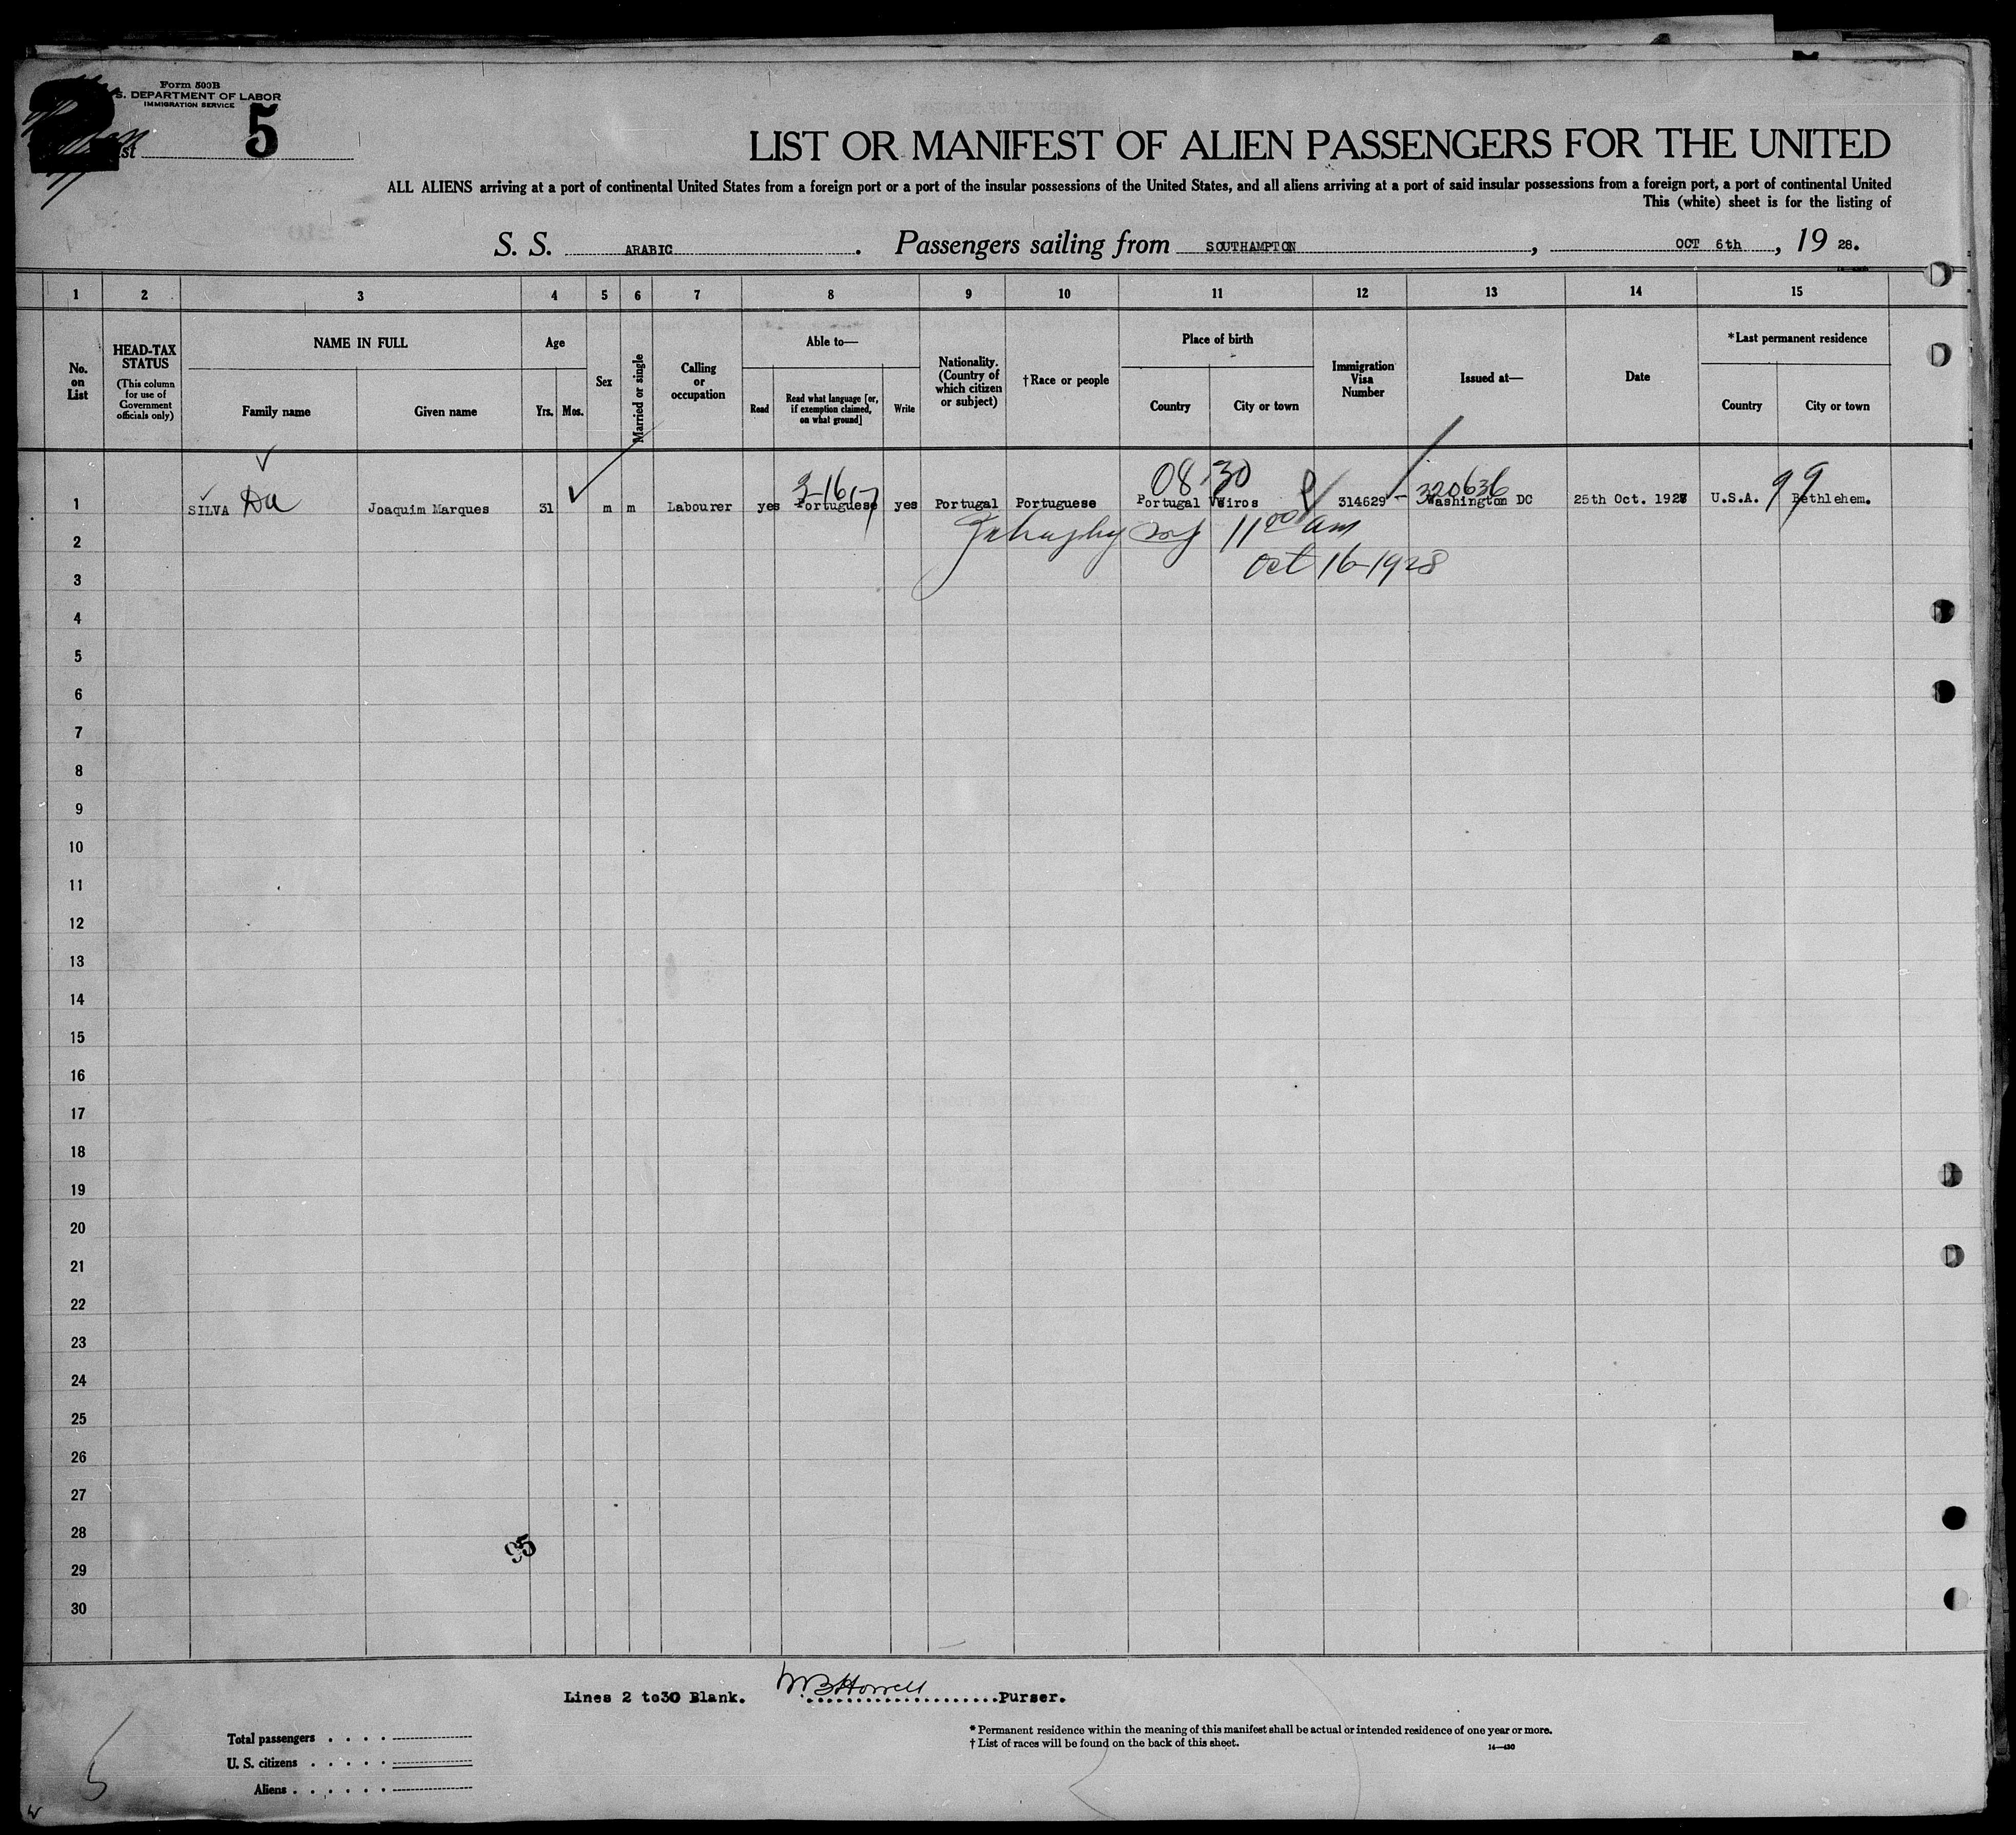 Form 500B
S. DEPARTMENT OF LABOR
IMMIGRATION SERVICE
5
LIST OR MANIFEST OF ALIEN PASSENGERS FOR THE UNITED
ALL ALIENS arriving at a port of continental United States from a foreign port or a port of the insular possessions of the United States, and all aliens arriving at a port of said insular possessions from a foreign port, a port of continental United
This (white) sheet is for the listing of
S. S. ARABIC. Passengers sailing from SOUTHAMPTON, OCT 6th, 19 28.
1 2 3 4 5 6 7 8 9 10 11 12 13 14 15
No. on List
HEAD-TAX STATUS
(This column for use of Government officials only)
NAME IN FULL
Family name Given name
Age
Yrs. Mos.
Sex
Married or single
Calling or occupation
Able to—
Read Read what language [or, if exemption claimed, on what ground] Write
Nationality. (Country of which citizen or subject)
†Race or people
Place of birth
Country City or town
Immigration Visa Number
Issued at—
Date
*Last permanent residence
Country City or town
08 30 320636 99
1 SILVA Da Joaquim Marques 31 m m Labourer yes Portuguese yes Portugal Portuguese Portugal Veiros 314629 - Washington DC 25th Oct. 1928 U.S.A. Bethlehem.
11 00 am
2
Oct 16-1928
3
4
5
6
7
8
9
10
11
12
13
14
15
16
17
18
19
20
21
22
23
24
25
26
27
28
95
29
30
Lines 2 to30 Blank. Purser.
Total passengers
U. S. citizens
Aliens
* Permanent residence within the meaning of this manifest shall be actual or intended residence of one year or more.
† List of races will be found on the back of this sheet.
14—430
5